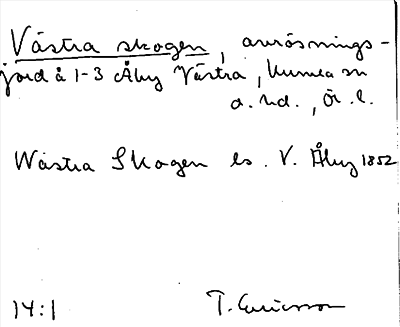 Västra skogen, avrösnings-
jord å 1-3 Åby Västra, Kumla sn
o. hd., Ör. l.
Wästra Skogen ls. V. Åby 1852
14:1 T. Ericsson